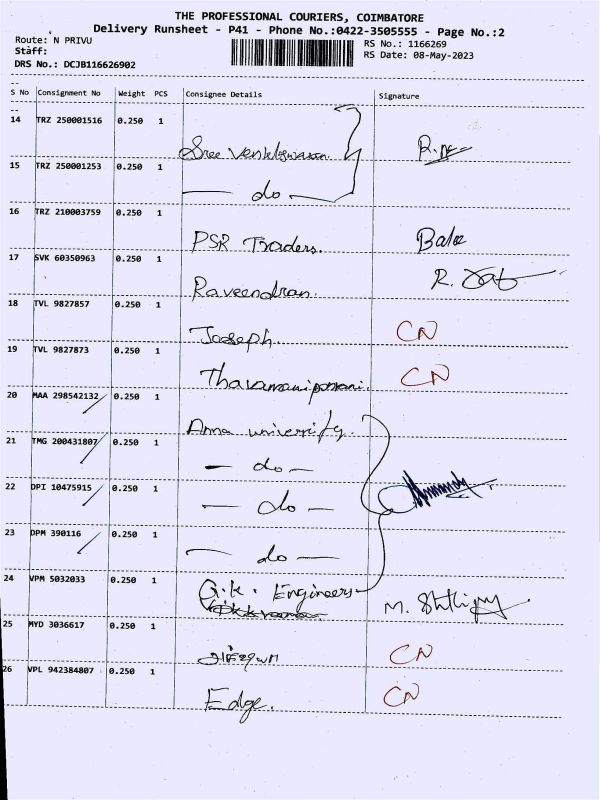 THE PROFESSIONAL COURIERS, COIMBATORE
Delivery Runsheet - P41 - Phone No.:0422-3505555 - Page No.:2
Route: N PRIVU RS No.: 1166269
Staff: RS Date: 08-May-2023
DRS No.: DCJB116626902
S No Consignment No Weight PCS Consignee Details Signature
14 TRZ 250001516 0.250 1 Sree R.
15 TRZ 250001253 0.250 1 — do —
16 TRZ 210003759 0.250 1 PSR Traders. Bala
17 SVK 60350963 0.250 1 Raveendran. R.
18 TVL 9827857 0.250 1 Joseph. CN
19 TVL 9827873 0.250 1 CN
20 MAA 298542132 0.250 1 Anna university.
21 TMG 200431807 0.250 1 — do —
22 DPI 10475915 0.250 1 — do —
23 DPM 390116 0.250 1 — do —
24 VPM 5032033 0.250 1 G.K. Engineers M.
25 MYD 3036617 0.250 1 CN
26 VPL 942384807 0.250 1 Edge. CN